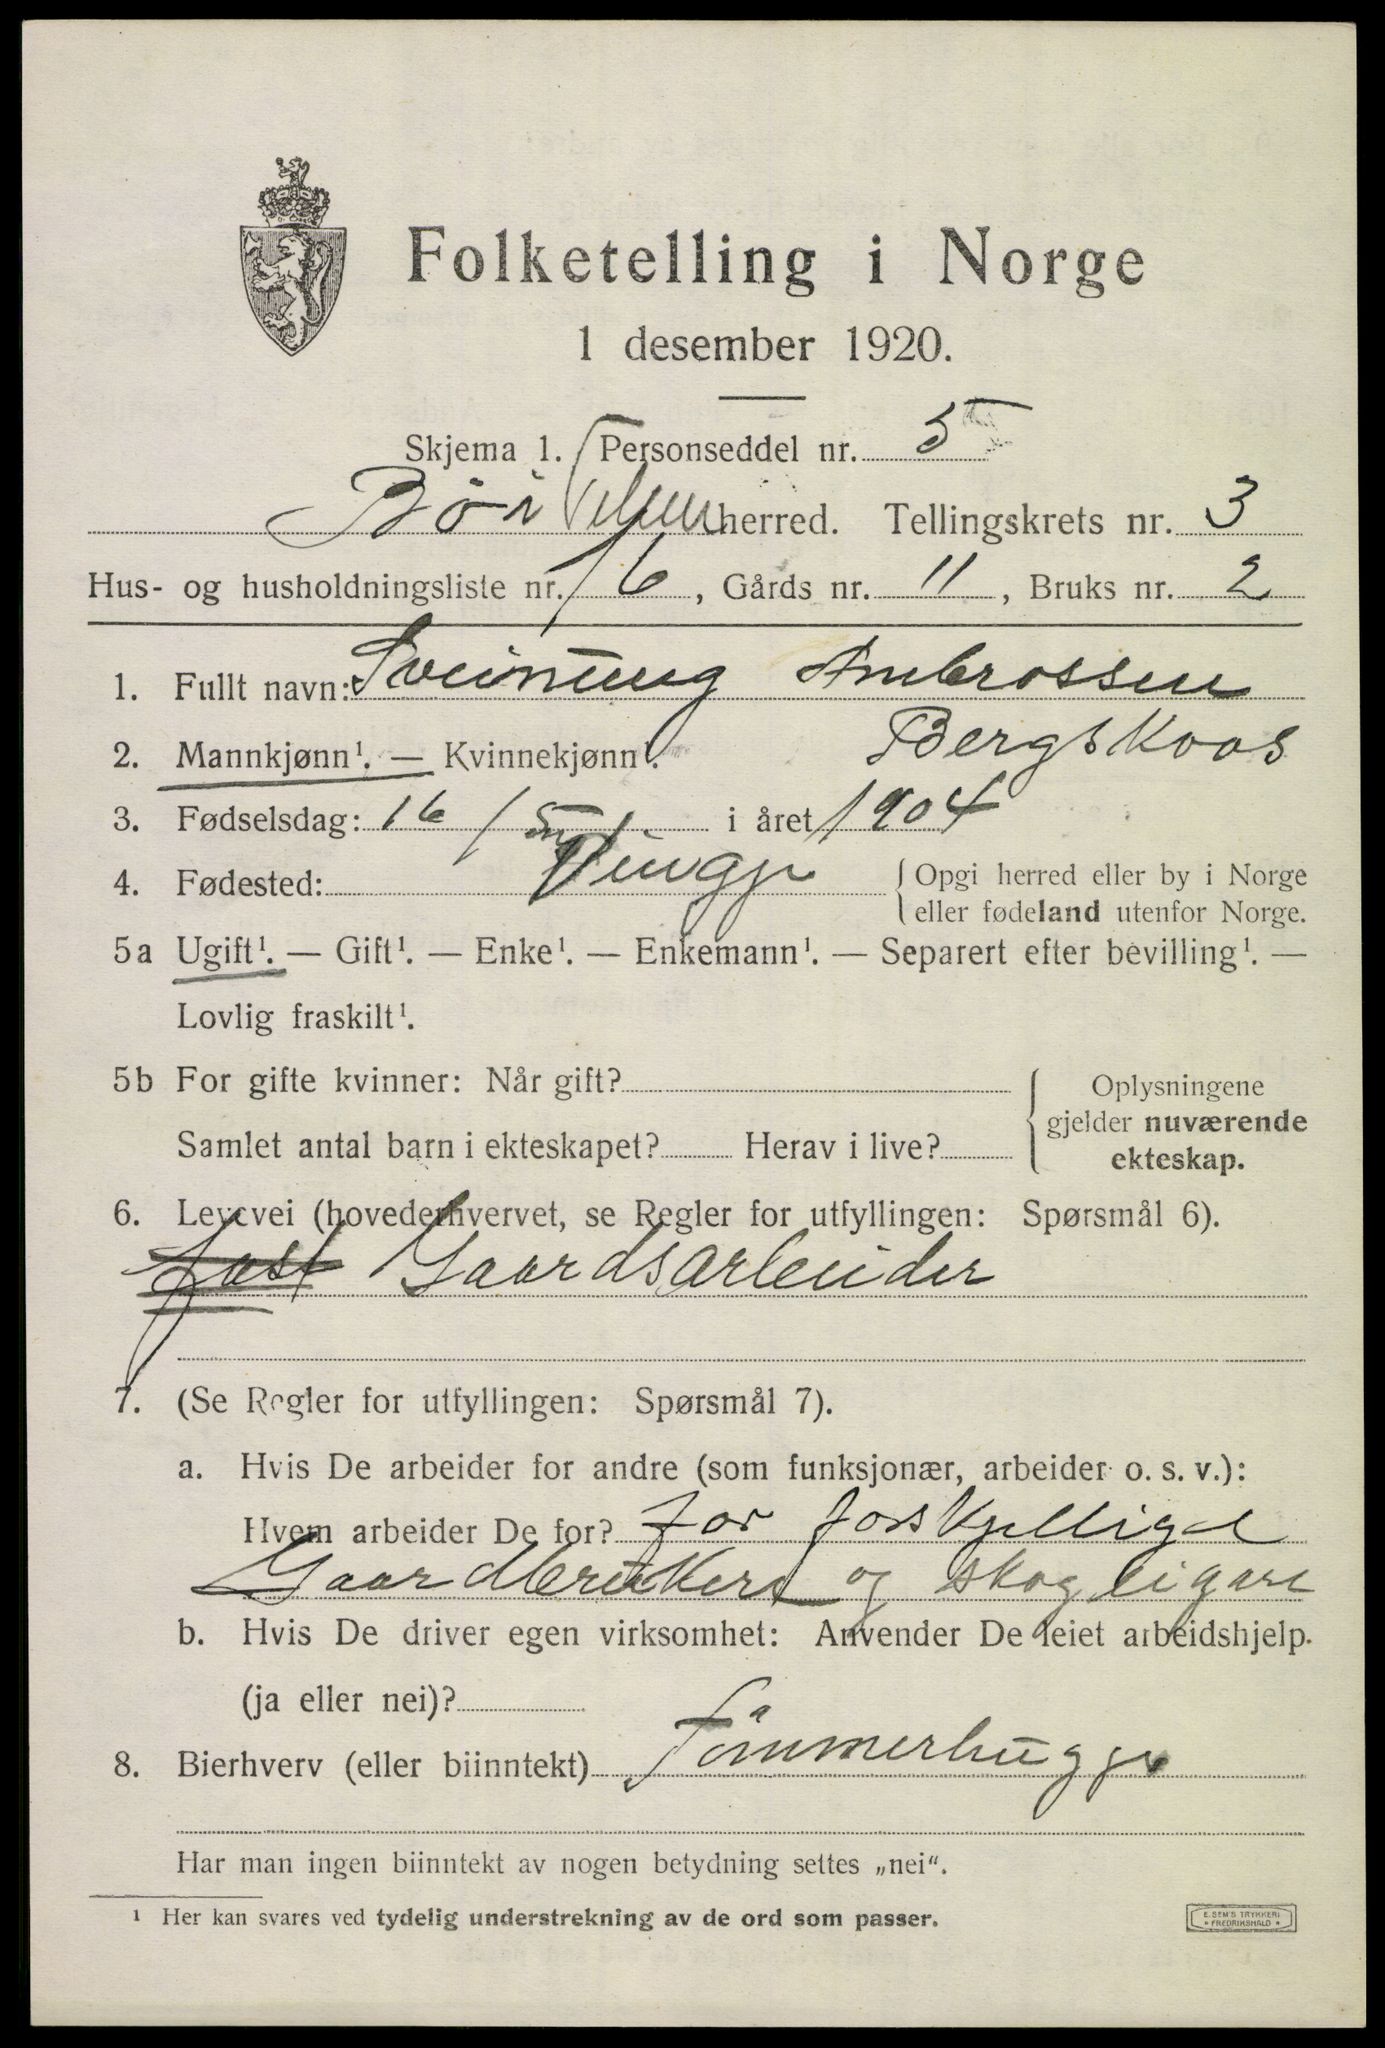 Folketelling i Norge
1 desember 1920.
Skjema 1. Personseddel nr. 5
Bø i Telem herred. Tellingskrets nr. 3
Hus- og husholdningsliste nr. 16, Gårds nr. 11, Bruks nr. 2
1. Fullt navn: Sveinung Ambrossen
Bergskaas
2. Mannkjønn¹. — Kvinnekjønn¹.
3. Fødselsdag: 16/5 i året 1904
4. Fødested: Vinje { Opgi herred eller by i Norge
eller fødeland utenfor Norge.
5a Ugift¹. — Gift¹. — Enke¹. — Enkemann¹. — Separert efter bevilling¹. —
Lovlig fraskilt¹.
5b For gifte kvinner: Når gift?
Samlet antal barn i ekteskapet? Herav i live?
Oplysningene
gjelder nuværende
ekteskap.
6. Levevei (hovederhvervet, se Regler for utfyllingen: Spørsmål 6).
fast Gaardsarbeider
7. (Se Regler for utfyllingen: Spørsmål 7).
a. Hvis De arbeider for andre (som funksjonær, arbeider o. s. v.):
Hvem arbeider De for? for forskjellige
Gaardbrukere og skogeigare
b. Hvis De driver egen virksomhet: Anvender De leiet arbeidshjelp
(ja eller nei)?
8. Bierhverv (eller biinntekt) Tømmerhugge
Har man ingen biinntekt av nogen betydning settes „nei“.
¹ Her kan svares ved tydelig understrekning av de ord som passer.
E. SEM'S TRYKKERI
* FREDRIKSHALD *